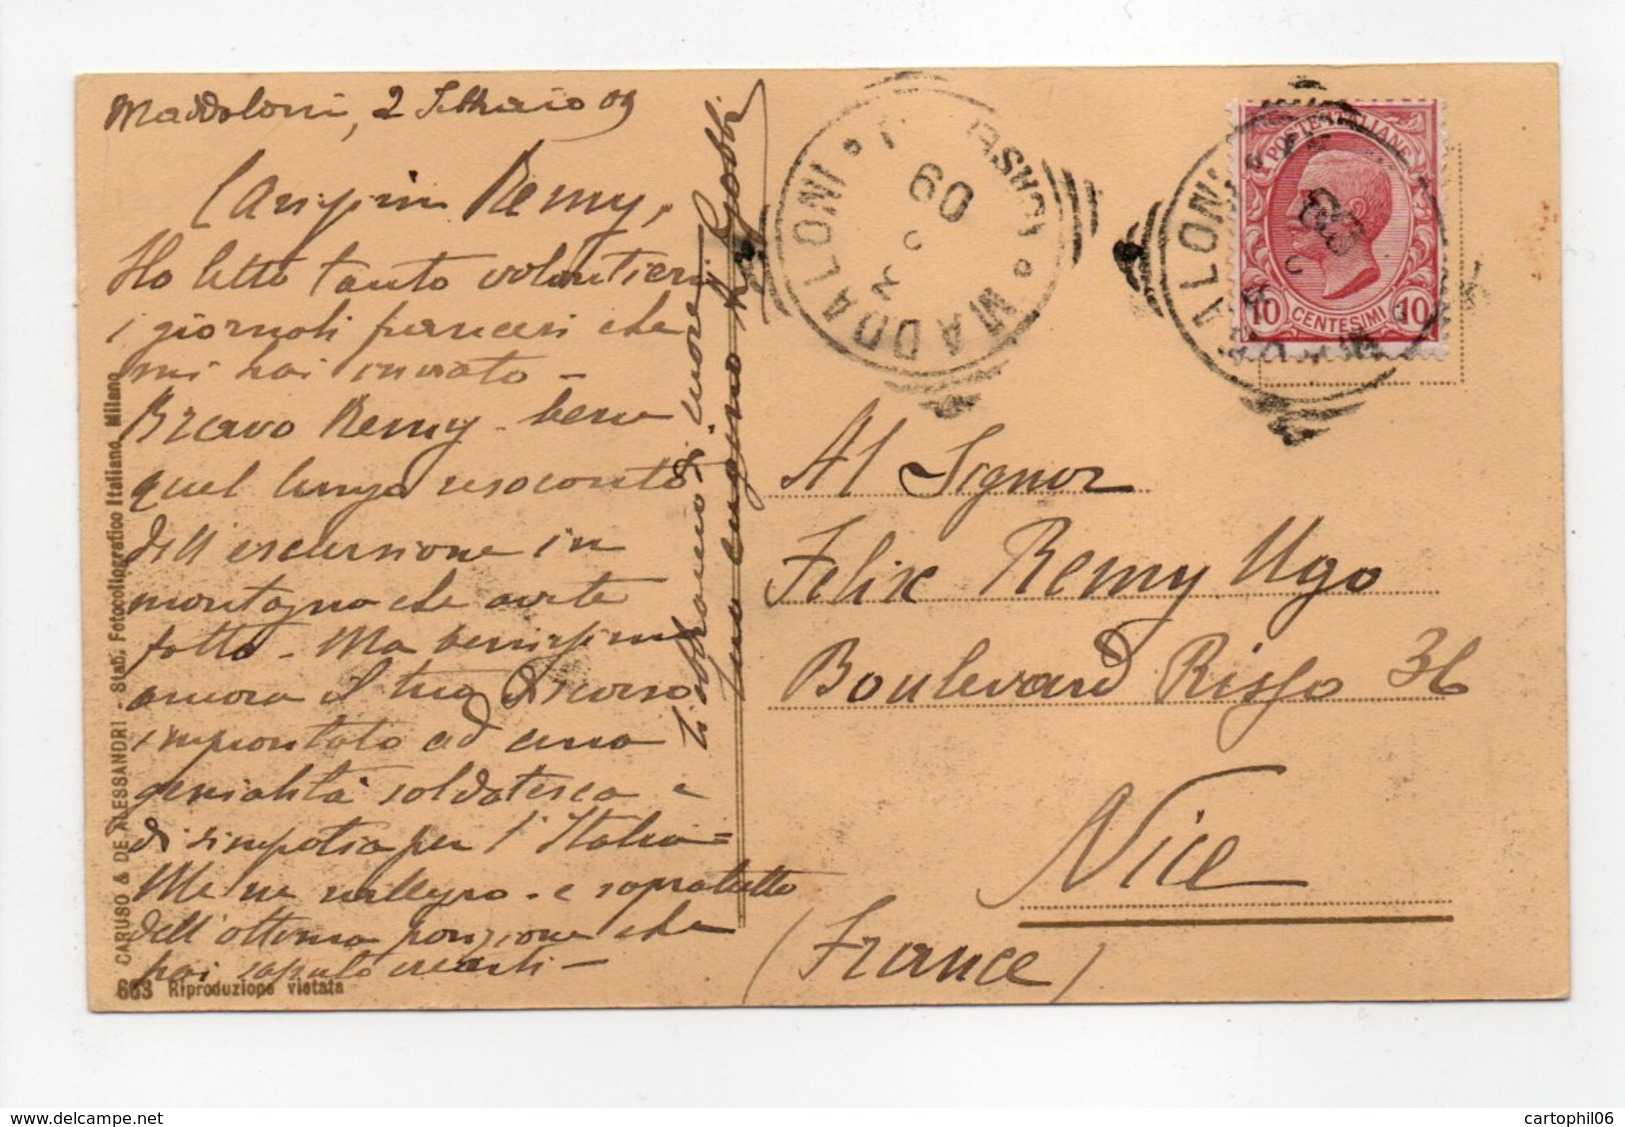 Maddaloni, 2 Febbraio 09
Carissimo Remy,
Ho letto tanto volontieri
i giornali francesi che
mi hai inviato -
Bravo Remy - bene
quel lungo resoconto
dell'escursione in
montagna che avete
fatto - Ma benissimo
ancora il tuo discorso
improntato ad una
genialità soldatesca e
di simpatia per l'Italia =
Me ne rallegro - e sopratutto
dell'ottima posizione che
hai saputo crearti -
Ti abbraccio di cuore
tuo cugino R. Gobbi
CARUSO & DE ALESSANDRI - Stab. Fotocollografico Italiano, Milano
663 Riproduzione vietata
MADDALONI
CASERTA
09
MADDALONI
POSTE ITALIANE
10 CENTESIMI 10
Al Signor
Felix Remy Ugo
Boulevard Risso 36
Nice
(France)
cartophil06